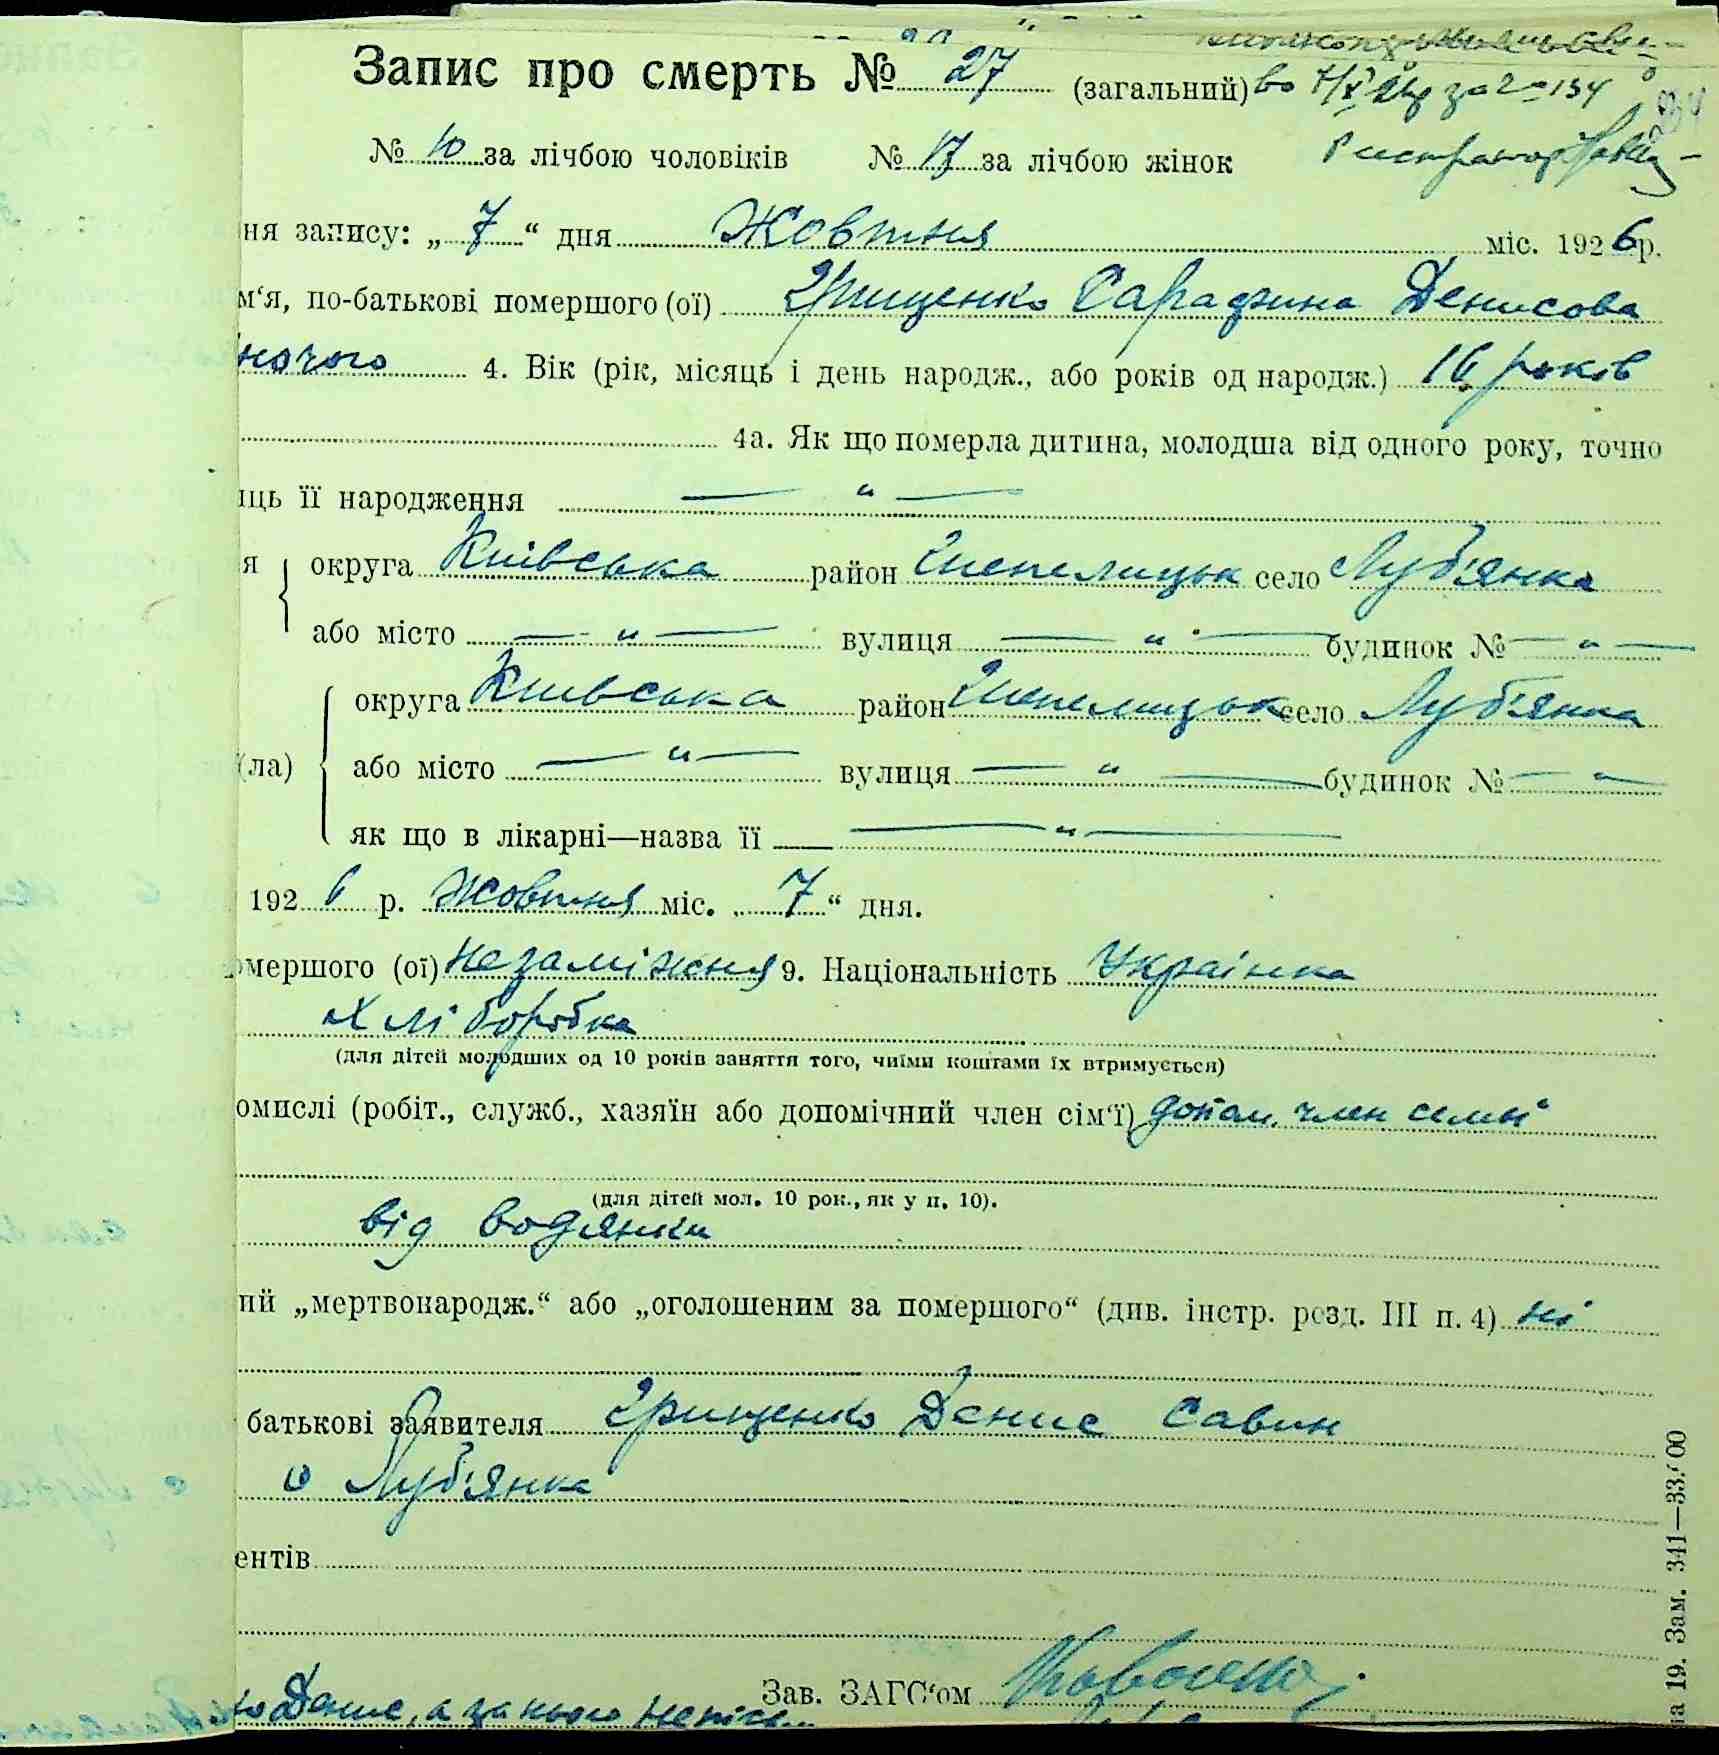 Запис про смерть № 27 (загальний) во 7/X 26р за № 134
№ 10 за лічбою чоловіків № 17 за лічбою жінок
ня запису: „ 7 “ дня Жовтня міс. 1926 р.
м‘я, по-батькові помершого (ої) Грищенко Денисова
ночого 4. Вік (рік, місяць і день народж., або років од народж.) 16 років
4а. Як що померла дитина, молодша від одного року, точно
яць її народження — „ —
я округа Київська район Шепелицьк село Луб'янка
або місто — „ — вулиця — „ — будинок № — „ —
округа Київська район Шепелицьк село Луб'янка
(ла) або місто — „ — вулиця — „ — будинок № — „ —
як що в лікарні—назва її — „ —
1926 р. Жовтня міс. „ 7 “ дня.
омершого (ої) незаміжня 9. Національність Українка
Хліборобка
(для дітей молодших од 10 років заняття того, чиїми коштами їх втримується)
омислі (робіт., служб., хазяїн або допомічний член сім‘ї) допом. член семьі
(для дітей мол. 10 рок., як у п. 10).
від водянки
ий „мертвонародж.“ або „оголошеним за помершого“ (див. інстр. розд. III п. 4) ні
батькові заявителя Грищенко Денис Савин
с Луб'янка
ентів
Зав. ЗАГС‘ом
Денис, а за нього
на 19. Зам. 341—33.000